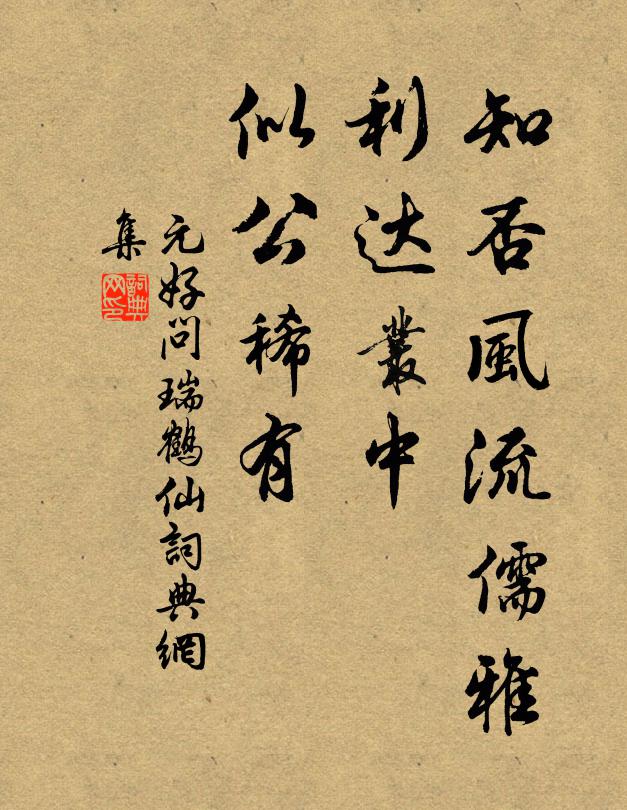 知否風流儒雅
利达叢中
似公稀有
元好问瑞鶴仙詞典網
集
詞典
网印